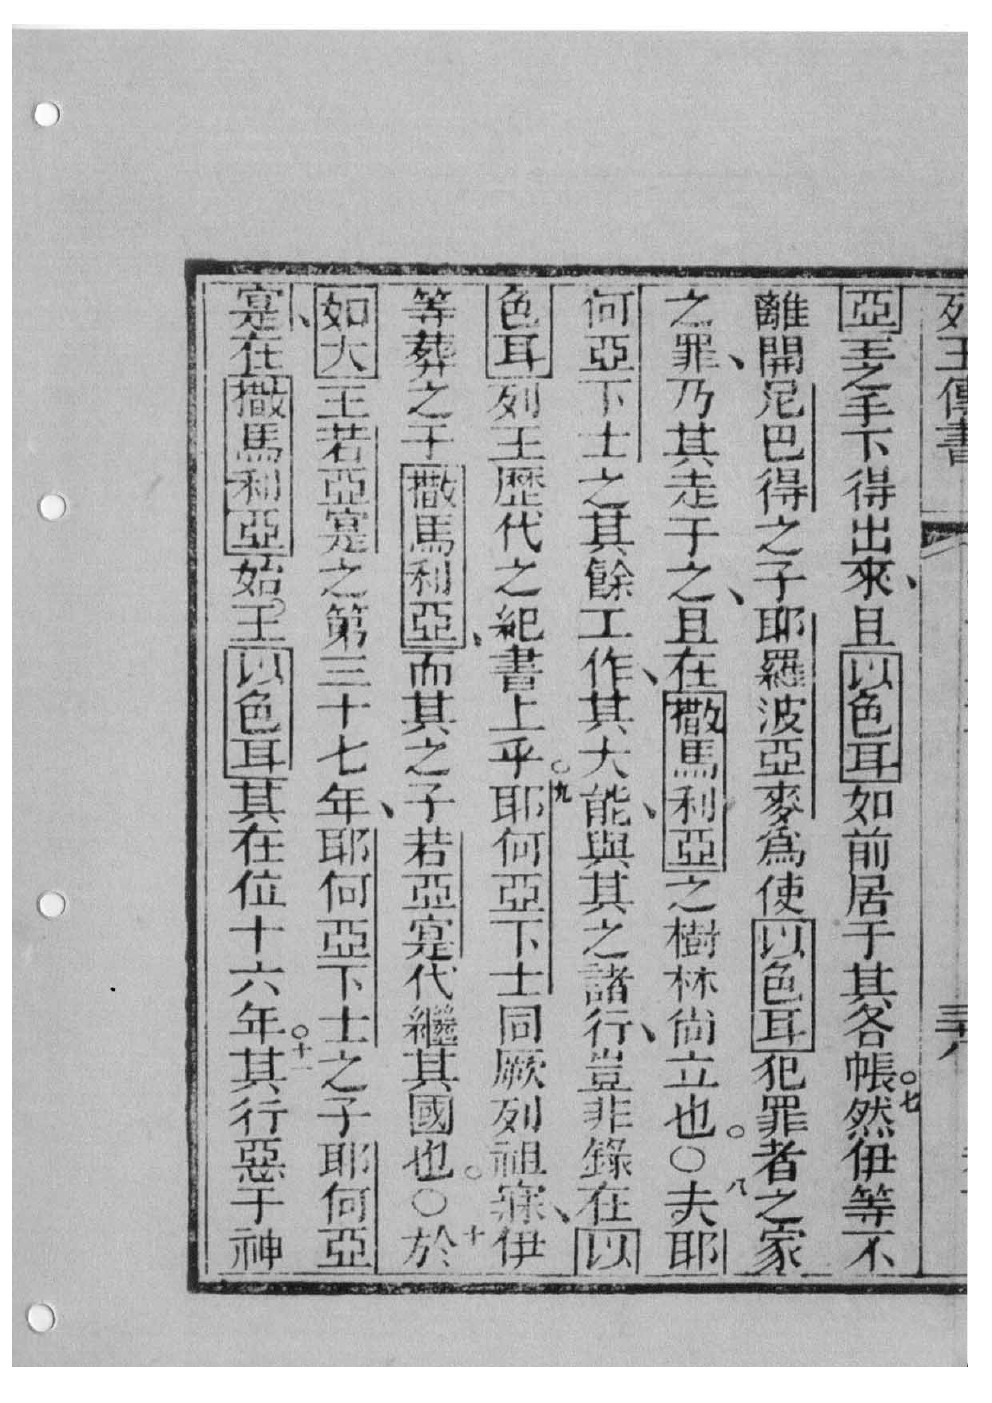 列王傳書
亞王之手下得出來、且以色耳如前居于其各帳。七然伊等不
離開尼巴得之子耶羅波亞麥爲使以色耳犯罪者之家
之罪、乃其走于之、且在撒馬利亞之樹林尙立也。〇八夫耶
何亞下士之其餘工作、其大能、與其之諸行、豈非錄在以
色耳列王歷代之紀書上乎。九耶何亞下士同厥列祖寐、伊
等葬之于撒馬利亞、而其之子若亞寔代繼其國也。〇十於
如大王若亞寔之第三十七年、耶何亞下士之子耶何亞
寔、在撒馬利亞始王以色耳。其在位十六年。十一其行惡于神